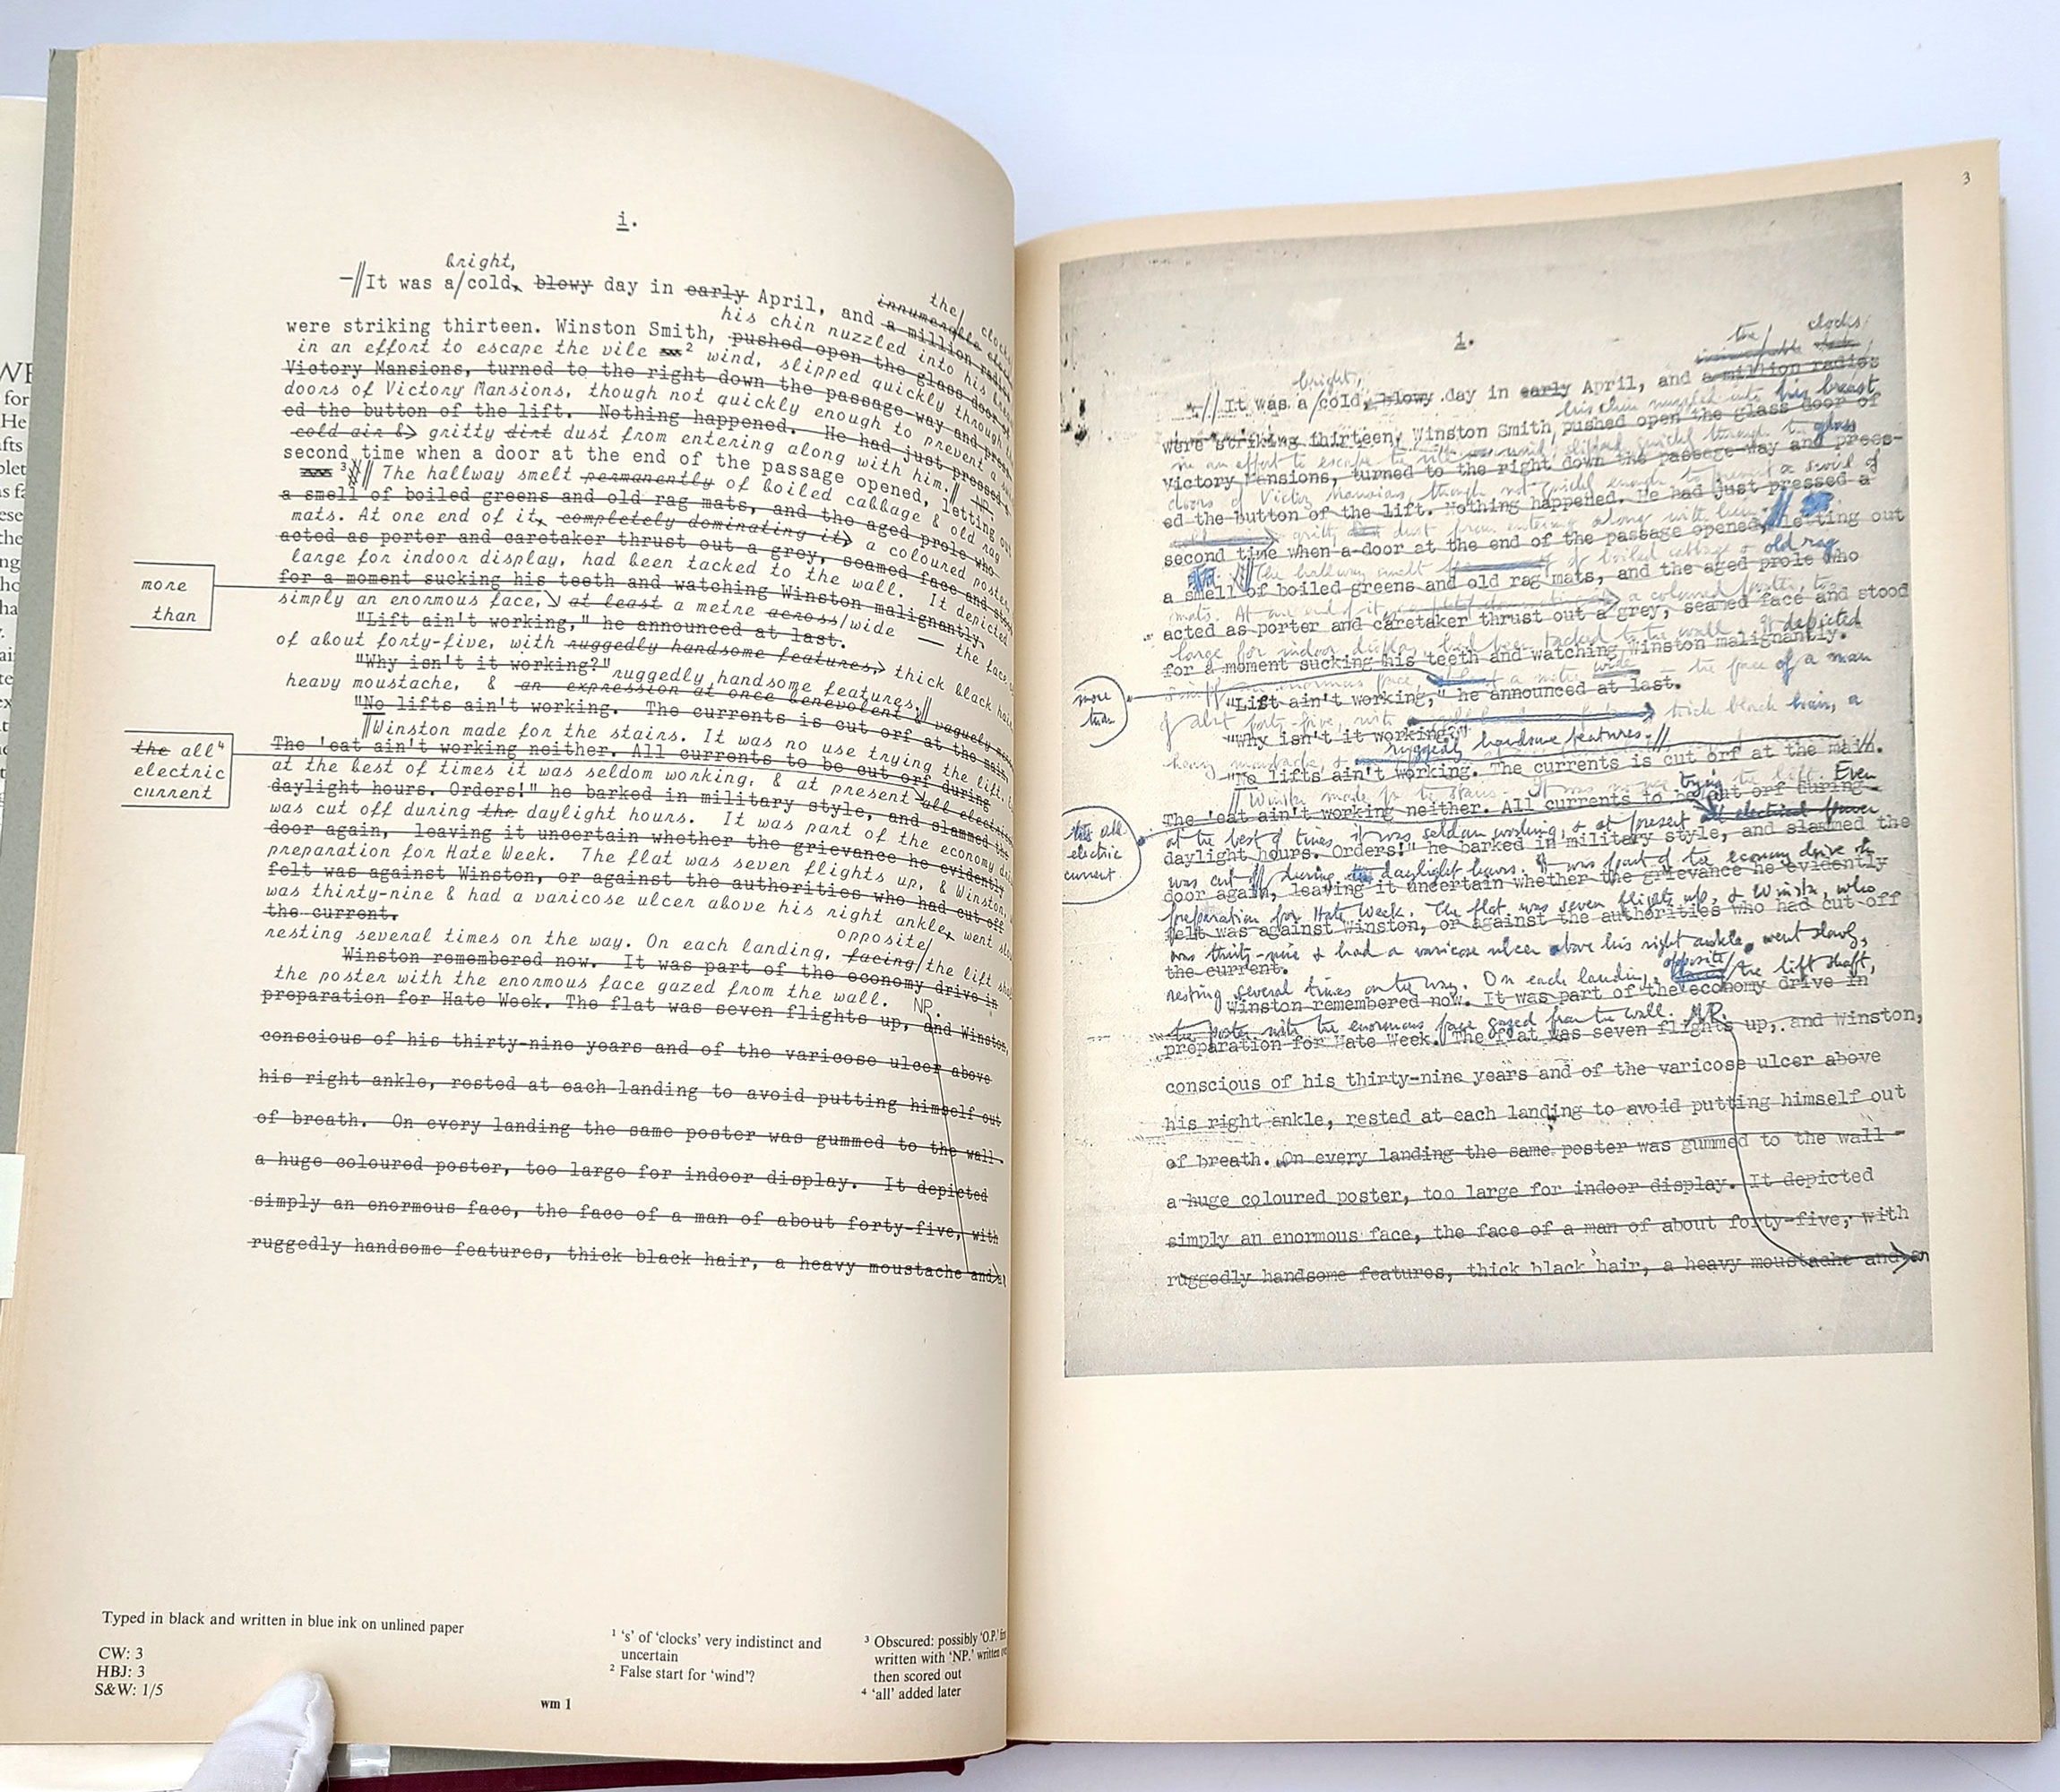 i.
bright,
It was a/cold, blowy day in early April, and a million radios
the/ clocks
innumerable
were striking thirteen. Winston Smith, pushed open the glass door of
his chin nuzzled into his breast
in an effort to escape the vile ² wind, slipped quickly through
Victory Mansions, turned to the right down the passage-way and press
doors of Victory Mansions, though not quickly enough to prevent a
ed the button of the lift. Nothing happened. He had just pressed
cold air & gritty dirt dust from entering along with him.
second time when a door at the end of the passage opened, letting out
³ The hallway smelt permanently of boiled cabbage & old rag
a smell of boiled greens and old rag mats, and the aged prole who
mats. At one end of it, completely dominating it, a coloured poster,
acted as porter and caretaker thrust out a grey, seamed face and stood
large for indoor display, had been tacked to the wall. It depicted
for a moment sucking his teeth and watching Winston malignantly.
more
than
simply an enormous face, at least a metre across/wide — the face
"Lift ain't working," he announced at last.
of about forty-five, with ruggedly handsome features, thick black hair
"Why isn't it working?"
ruggedly handsome features.
heavy moustache, & an expression at once benevolent & vaguely
"No lifts ain't working. The currents is cut orf at the main.
Winston made for the stairs. It was no use trying the lift.
The 'eat ain't working neither. All currents to be cut orf during
the all⁴
electric
current
at the best of times it was seldom working, & at present all electric
daylight hours. Orders!" he barked in military style, and slammed the
was cut off during the daylight hours. It was part of the economy
door again, leaving it uncertain whether the grievance he evidently
preparation for Hate Week. The flat was seven flights up, & Winston,
felt was against Winston, or against the authorities who had cut off
was thirty-nine & had a varicose ulcer above his right ankle, went
the current.
opposite/
resting several times on the way. On each landing, facing/the lift
Winston remembered now. It was part of the economy drive in
the poster with the enormous face gazed from the wall. NP.
preparation for Hate Week. The flat was seven flights up, and Winston,
conscious of his thirty-nine years and of the varicose ulcer above
his right ankle, rested at each landing to avoid putting himself out
of breath. On every landing the same poster was gummed to the wall-
a huge coloured poster, too large for indoor display. It depicted
simply an enormous face, the face of a man of about forty-five, with
ruggedly handsome features, thick black hair, a heavy moustache and
Typed in black and written in blue ink on unlined paper
CW: 3
HBJ: 3
S&W: 1/5
¹ 's' of 'clocks' very indistinct and
uncertain
² False start for 'wind'?
³ Obscured: possibly 'O.P.'
written with 'NP.' written
then scored out
⁴ 'all' added later
wm 1
3
1.
the/ clocks/
bright,
It was a/cold, blowy day in early April, and a million radios
his chin nuzzled into his breast
were striking thirteen. Winston Smith pushed open the glass door of
in an effort to escape the vile wind, slipped quickly through the glass
Victory Mansions, turned to the right down the passage-way and press-
doors of Victory Mansions, though not quickly enough to prevent a swirl of
ed the button of the lift. Nothing happened. He had just pressed a
gritty dust from entering along with him.
second time when a door at the end of the passage opened, letting out
The hallway smelt of boiled cabbage & old rag
a smell of boiled greens and old rag mats, and the aged prole who
mats. At one end of it a coloured poster, too
acted as porter and caretaker thrust out a grey, seamed face and stood
large for indoor display, had been tacked to the wall. It depicted
for a moment sucking his teeth and watching Winston malignantly.
more
than
simply an enormous face, a metre wide — the face of a man
"Lift ain't working," he announced at last.
of about forty-five, with thick black hair, a
"Why isn't it working?"
ruggedly handsome features.
heavy moustache, &
"No lifts ain't working. The currents is cut orf at the main.
Winston made for the stairs. It was no use trying the lift. Even
The 'eat ain't working neither. All currents to be cut orf during
the all
electric
current
at the best of times it was seldom working, & at present
daylight hours. Orders!" he barked in military style, and slammed the
was cut off during the daylight hours. It was part of the economy drive in
door again, leaving it uncertain whether the grievance he evidently
preparation for Hate Week. The flat was seven flights up, & Winston, who
felt was against Winston, or against the authorities who had cut off
was thirty-nine & had a varicose ulcer above his right ankle, went slowly,
the current.
opposite/
resting several times on the way. On each landing, facing/the lift shaft,
Winston remembered now. It was part of the economy drive in
the poster with the enormous face gazed from the wall. NP.
preparation for Hate Week. The flat was seven flights up, and Winston,
conscious of his thirty-nine years and of the varicose ulcer above
his right ankle, rested at each landing to avoid putting himself out
of breath. On every landing the same poster was gummed to the wall-
a huge coloured poster, too large for indoor display. It depicted
simply an enormous face, the face of a man of about forty-five, with
ruggedly handsome features, thick black hair, a heavy moustache and an